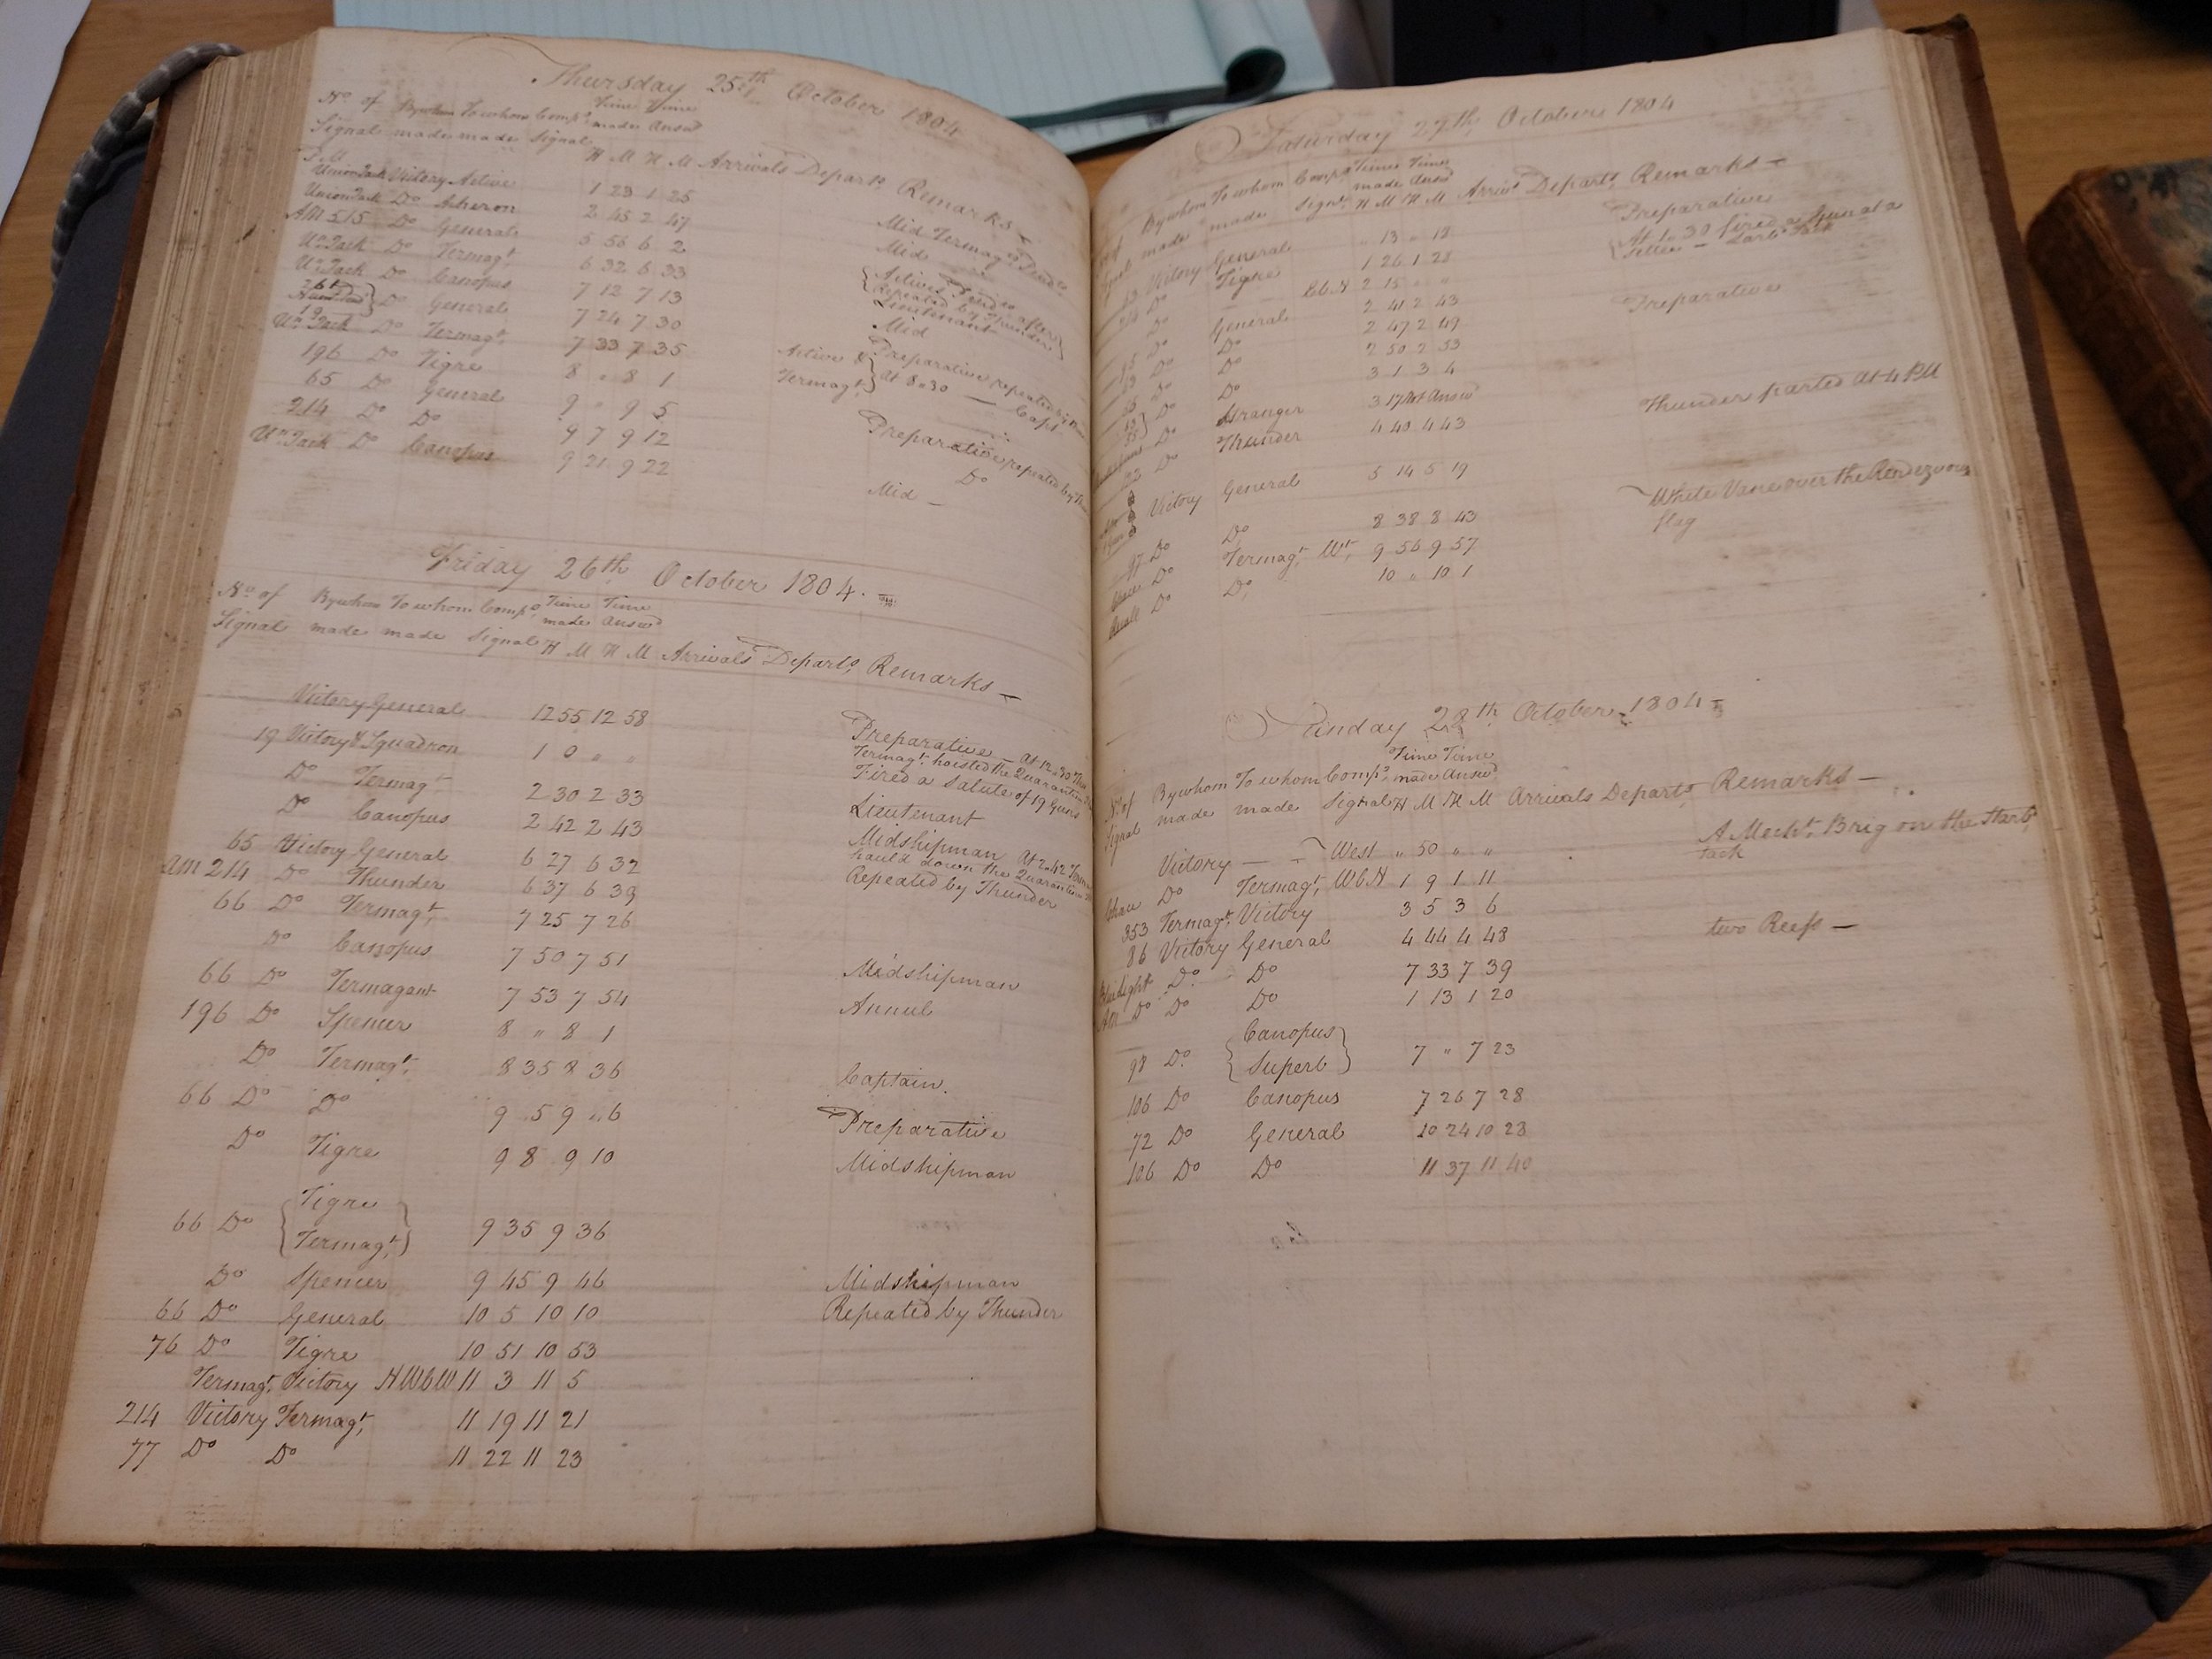 Thursday 25th October 1804
No. of By whom To whom Comps. Time Time
Signal made made Signal made Answd
H M H M Arrivals Departs. Remarks
P.M
Union Jack Victory Active 1 23 1 25
Union Jack Do Acheron 2 45 2 47 Mid Termagt
AM 515 Do General 5 56 6 2 Mid
Un. Jack Do Termagt. 6 32 6 33
Un. Jack Do Canopus 7 12 7 13 repeated by Thunder
Do General 7 24 7 30 Lieutenant
Un. Jack Do Termagt. 7 33 7 35 Mid
196 Do Tigre 8 " 8 1 Active & Preparative repeated by
65 Do General 9 " 9 5 Termagt. At 8"30 — Capt
214 Do Do 9 7 9 12 Preparative repeated by
Un. Jack Do Canopus 9 21 9 22 Do
Mid —
Friday 26th October 1804.
No. of By whom To whom Comps. Time Time
Signal made made Signal made Answd
H M H M Arrivals Departs. Remarks —
Victory General 12 55 12 58 Preparative — At 12"30
19 Victory & Squadron 1 0 " " Termagt. hoisted the Quarantine
Fired a Salute of 19 Guns
Do Termagt. 2 30 2 33 Lieutenant
Do Canopus 2 42 2 43 Midshipman At 2"42
hauld down the Quarantine
65 Victory General 6 27 6 32 Repeated by Thunder
AM 214 Do Thunder 6 37 6 39
66 Do Termagt. 7 25 7 26
Do Canopus 7 50 7 51 Midshipman
66 Do Termagant 7 53 7 54 Annul
196 Do Spencer 8 " 8 1
Do Termagt. 8 35 8 36 Captain.
66 Do Do 9 5 9 "6 Preparative
Do Tigre 9 8 9 10 Midshipman
66 Do { Tigre
Termagt. } 9 35 9 36
Do Spencer 9 45 9 46 Midshipman
66 Do General 10 5 10 10 Repeated by Thunder
76 Do Tigre 10 51 10 53
Termagt. Victory NWbW 11 3 11 5
214 Victory Termagt. 11 19 11 21
77 Do Do 11 22 11 23
Saturday 27th October 1804
By whom To whom Comps. Time Time
made made Signl. made Answd
H M H M Arrivs. Departs. Remarks —
Victory General " 13 " 18 Preparative
Do Tigre 1 26 1 28 At 1"30 fired a Gun at a
Settee — Larbd. Tack
Do EbN 2 15 " "
Do General 2 41 2 43 Preparative
Do Do 2 47 2 49
Do Do 2 50 2 53
Do Do 3 1 3 4
Do Stranger 3 17 Not Answd
Do Thunder 4 40 4 43 Thunder parted At 4 PM
Victory General 5 14 5 19 White Vane over the Rendezvous
flag
Do Do 8 38 8 43
Do Termagt. Wt. 9 56 9 57
Do Do 10 " 10 1
Sunday 28th October 1804
No. of By whom To whom Comps. Time Time
Signal made made Signal made Answd
H M H M Arrivals Departs Remarks —
Victory — West " 50 " " A Mercht. Brig on the Starbd
tack
Chace Do Termagt. WbN 1 9 1 11
353 Termagt. Victory 3 5 3 6
86 Victory General 4 44 4 48 two Reefs —
Do Do 7 33 7 39
AM Do Do Do 1 13 1 20
98 Do. { Canopus
Superb } 7 " 7 23
106 Do Canopus 7 26 7 28
72 Do General 10 24 10 23
106 Do Do 11 37 11 40